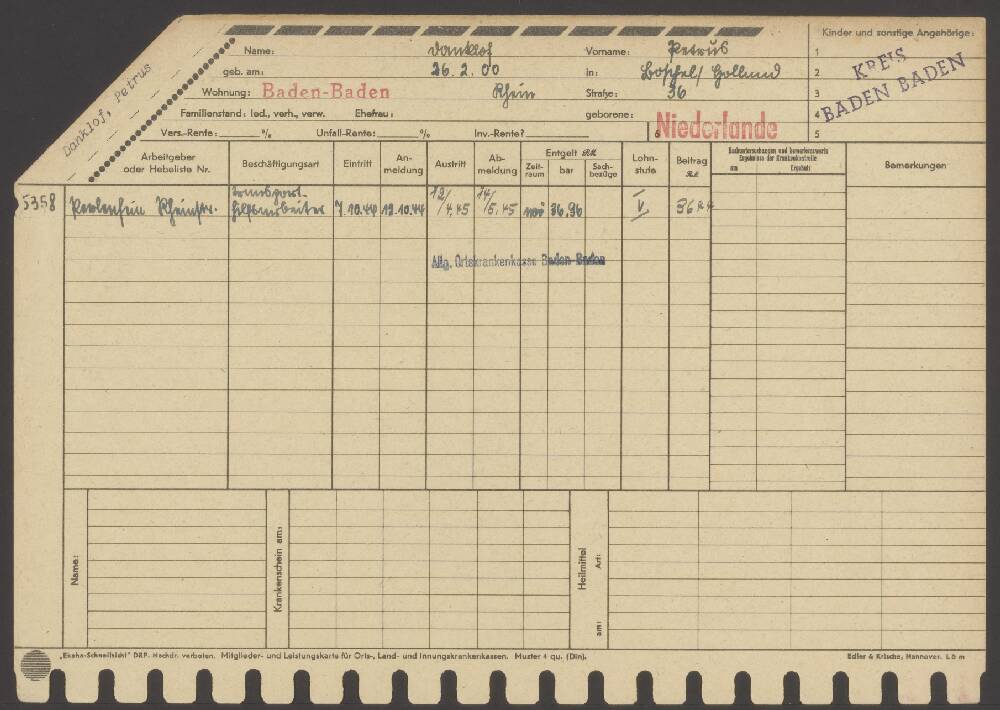 Danklof, Petrus
Name: Danklof Vorname: Petrus
geb. am: 26.2.00 in: Boschel/ Holland
Wohnung: Baden-Baden Rhein Straße: 36
Familienstand: led., verh., verw. Ehefrau: geborene:
Vers.-Rente: % Unfall-Rente: % Inv.-Rente?
Niederlande
Kinder und sonstige Angehörige:
1
2
3
4
5
6
KREIS
BADEN BADEN
Arbeitgeber oder Hebeliste Nr.
Beschäftigungsart
Eintritt
An-meldung
Austritt
Ab-meldung
Entgelt RM
Zeit-raum
bar
Sach-bezüge
Lohn-stufe
Beitrag RM
am
Bemerkungen
5358 Rheinstr. Transport-hilfsarbeiter 7.10.44 12.10.44 12/4.45 14/5.45 36.96 V
Allg. Ortskrankenkasse Baden-Baden
Name:
Krankenschein am:
Heilmittel
Art:
am:
"Eseha-Schnellsicht" DRP. Nachdr. verboten. Mitglieder- und Leistungskarte für Orts-, Land- und Innungskrankenkassen. Muster 4 qu. (Din).
Edler & Krische, Hannover.